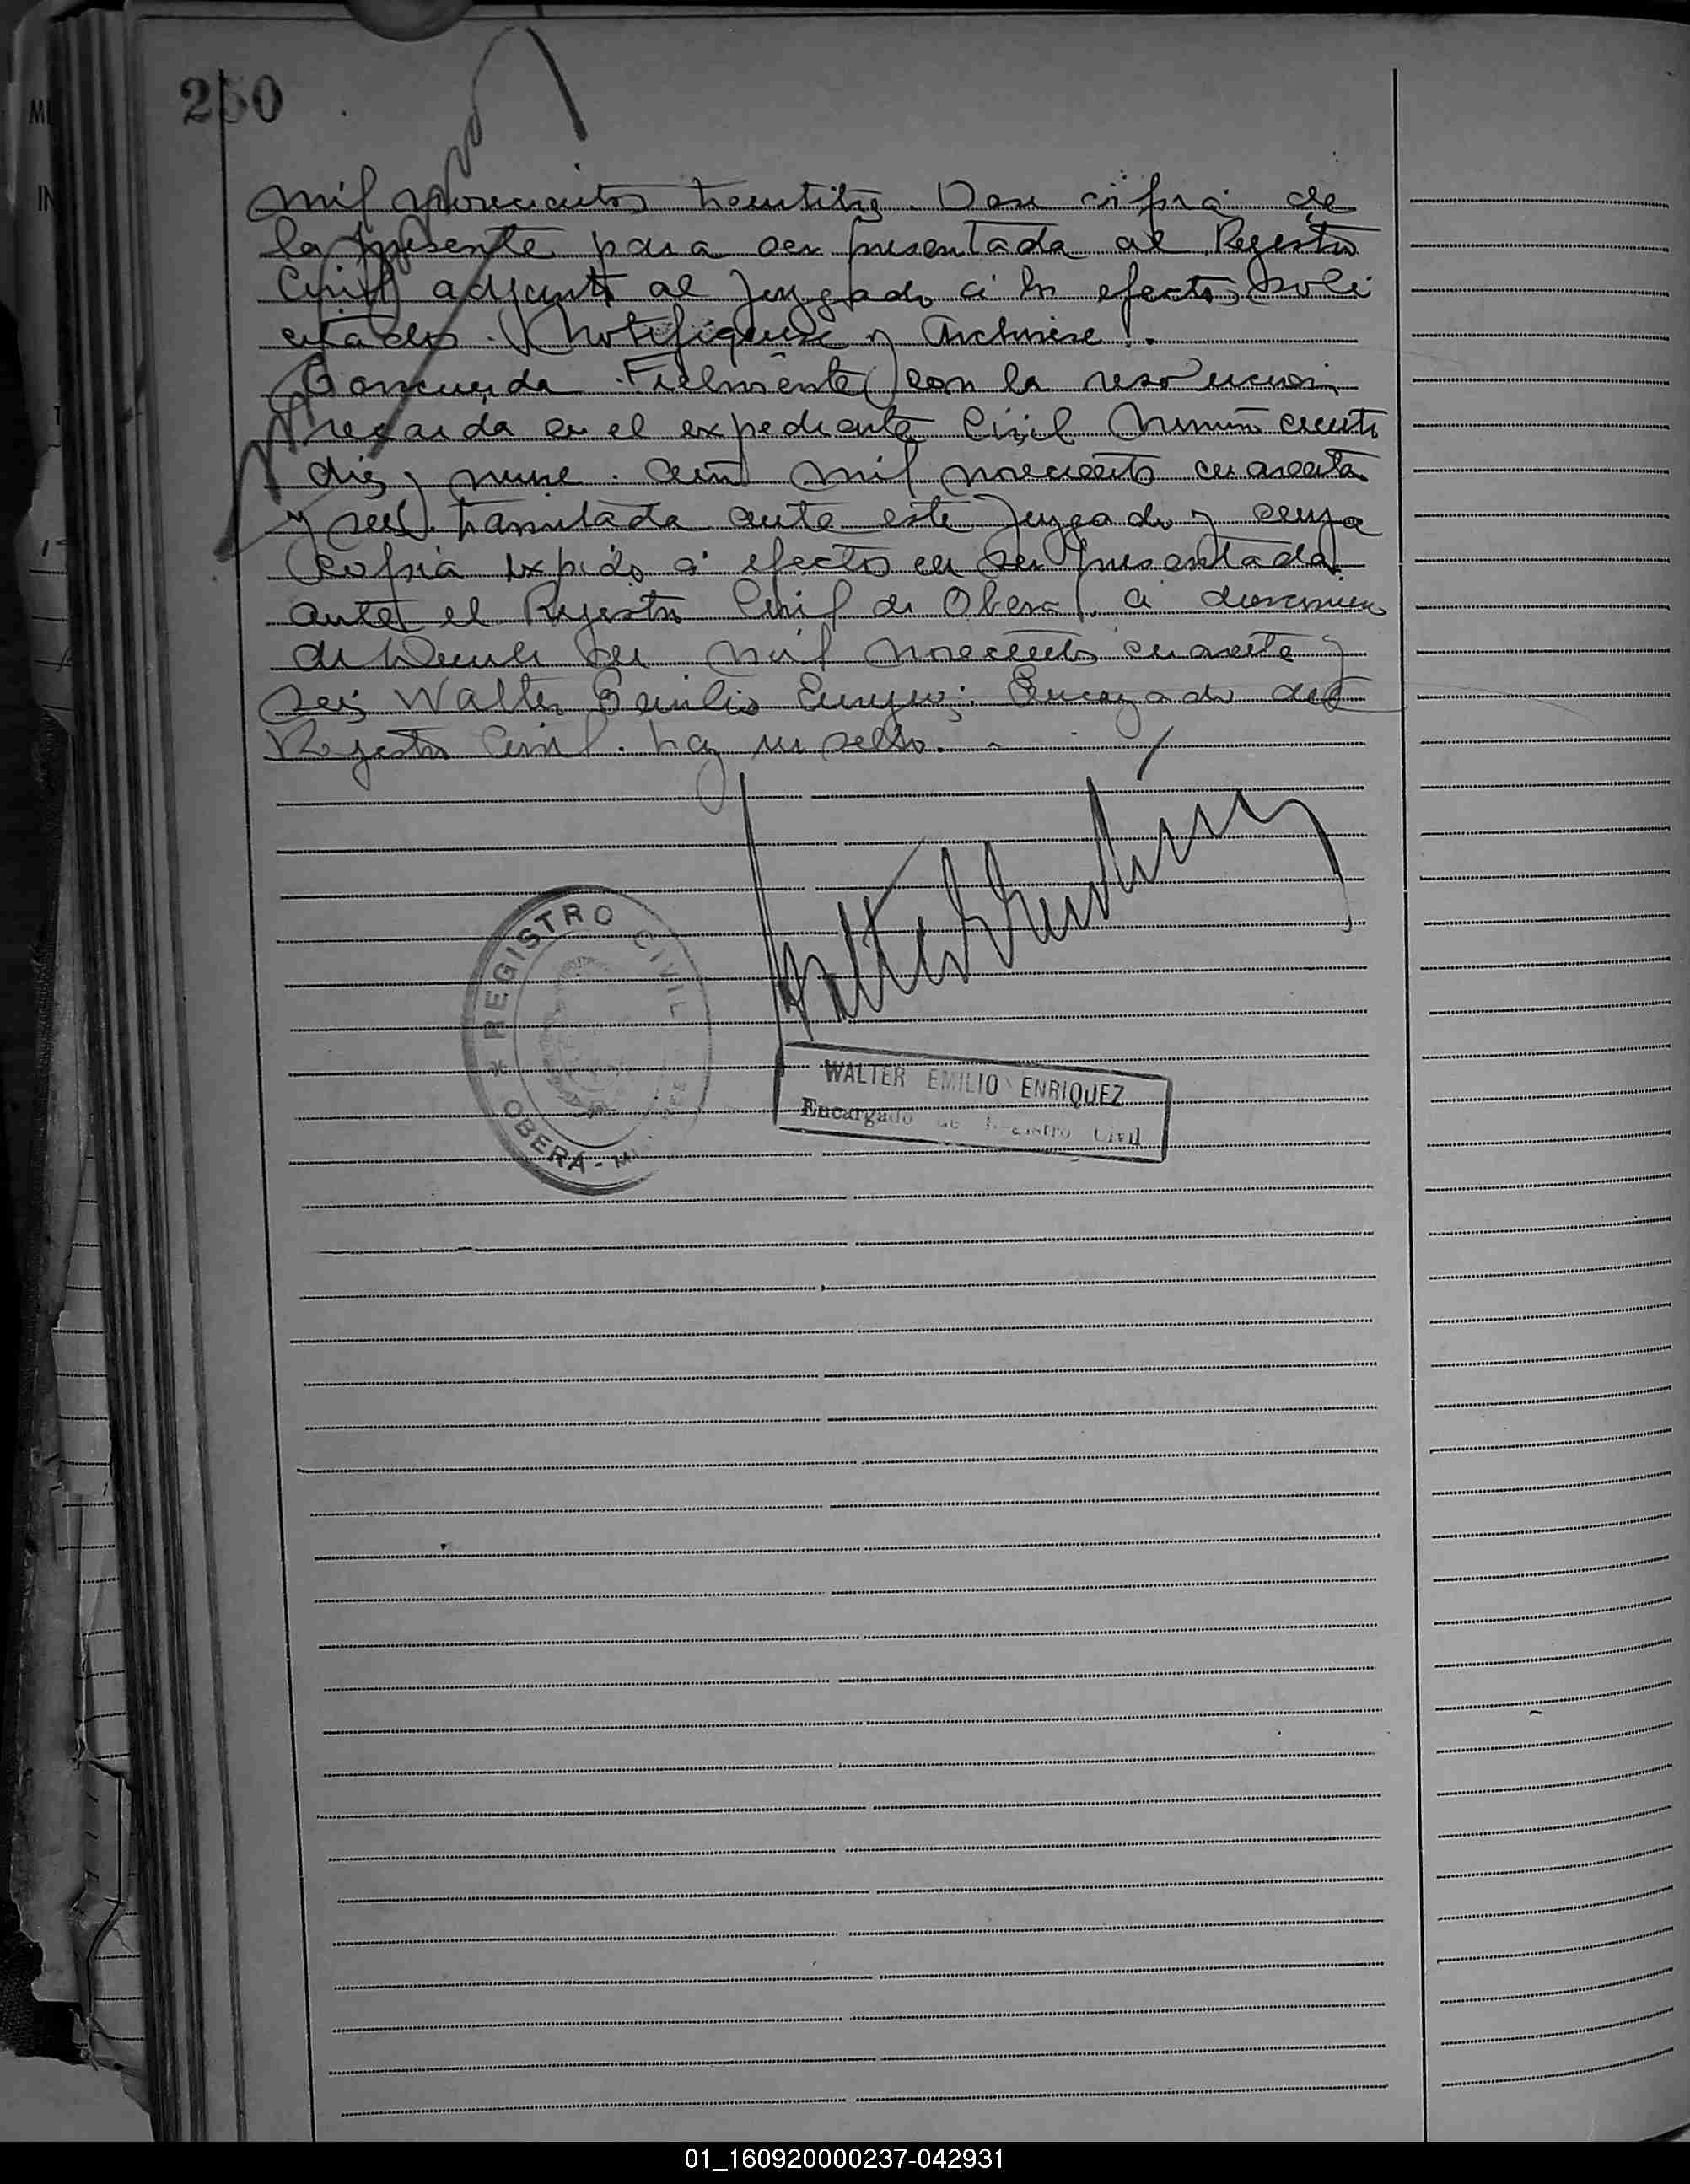 250
mil novecientos treintitres. Dese copia de
la presente para ser presentada al Registro
Civil adjunto al Juzgado a los efectos soli
citados. Notifiquese y Archivese.
Concuerda Fielmente con la resolucion
recaida en el expediente Civil Numero ciento
diez y nueve. año mil novecientos cuarenta
y seis tramitada ante este Juzgado y cuya
copia expido a efectos de ser presentada
ante el Registro Civil de Obera, a
de mil novecientos cuarenta y
seis Walter Emilio Enriquez: Encargado del
Registro Civil. hay un sello.
REGISTRO CIVIL
OBERA - MI
WALTER EMILIO ENRIQUEZ
Encargado de Registro Civil
01_160920000237-042931